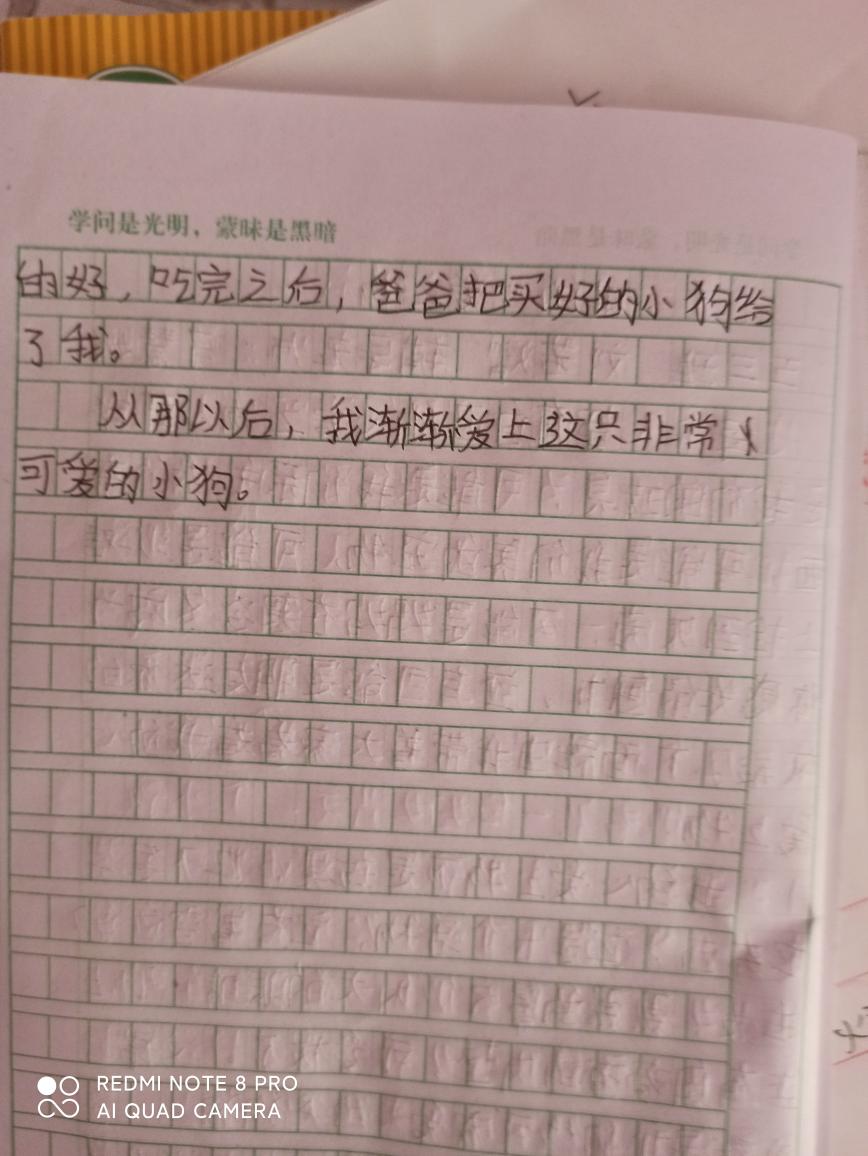 学问是光明，蒙昧是黑暗
的好，吃完之后，爸爸把买好的小狗给
了我。
从那以后，我渐渐爱上这只非常
可爱的小狗。
REDMI NOTE 8 PRO
AI QUAD CAMERA